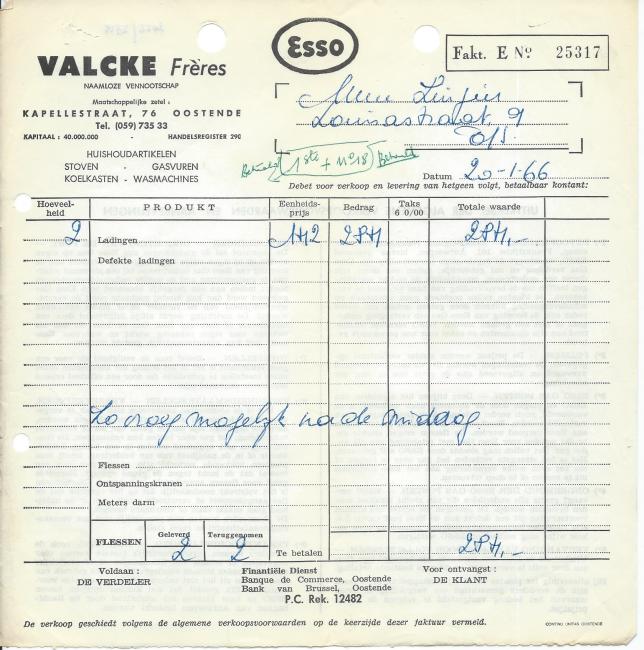 Esso
VALCKE Frères
NAAMLOZE VENNOOTSCHAP
Maatschappelijke zetel :
KAPELLESTRAAT, 76 OOSTENDE
Tel. (059) 735 33
KAPITAAL : 40.000.000 - HANDELSREGISTER 290
HUISHOUDARTIKELEN
STOVEN - GASVUREN
KOELKASTEN - WASMACHINES
Fakt. E No 25317
Louisastraat 9
1ste + n° 18
Datum 20-1-66
Debet voor verkoop en levering van hetgeen volgt, betaalbaar kontant:
Hoeveel-heid PRODUKT Eenheids-prijs Bedrag Taks 6 0/00 Totale waarde
2 Ladingen 142 284 284,-
Defekte ladingen
Zo vroeg mogelijk na de middag
Flessen
Ontspanningskranen
Meters darm
FLESSEN Geleverd 2 Teruggenomen 2 Te betalen 284,-
Voldaan : DE VERDELER
Financiële Dienst
Banque de Commerce, Oostende
Bank van Brussel, Oostende
P.C. Rek. 12482
Voor ontvangst : DE KLANT
De verkoop geschiedt volgens de algemene verkoopsvoorwaarden op de keerzijde dezer faktuur vermeld.